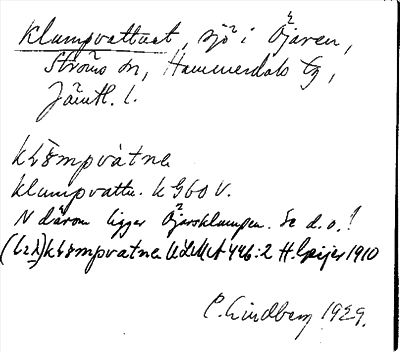 Klumpvattnet, sjö i Öjaren,
Ströms sn, Hammerdals tg,
Jämtl. l.
klumpvattn. kG60 V.
N därom ligger Öjarsklumpen. Se d. o.!
ULMA 446:2 H. Geijer 1910
C. Lindberg 1929.